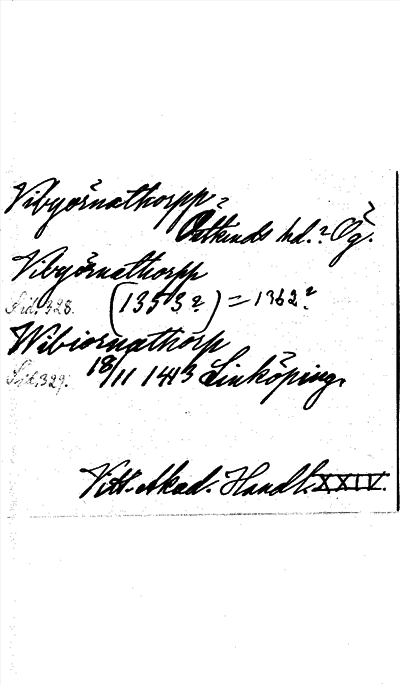 Vibyörnathorpp?
Östkinds hd.? Ög.
Vibyörnathorpp
Sid. 328. (1353?) = 1362?
Wibiornathorp
Sid. 329. 18/11 1443 Linköping.
Vitt. Akad. Handl. XXIV.